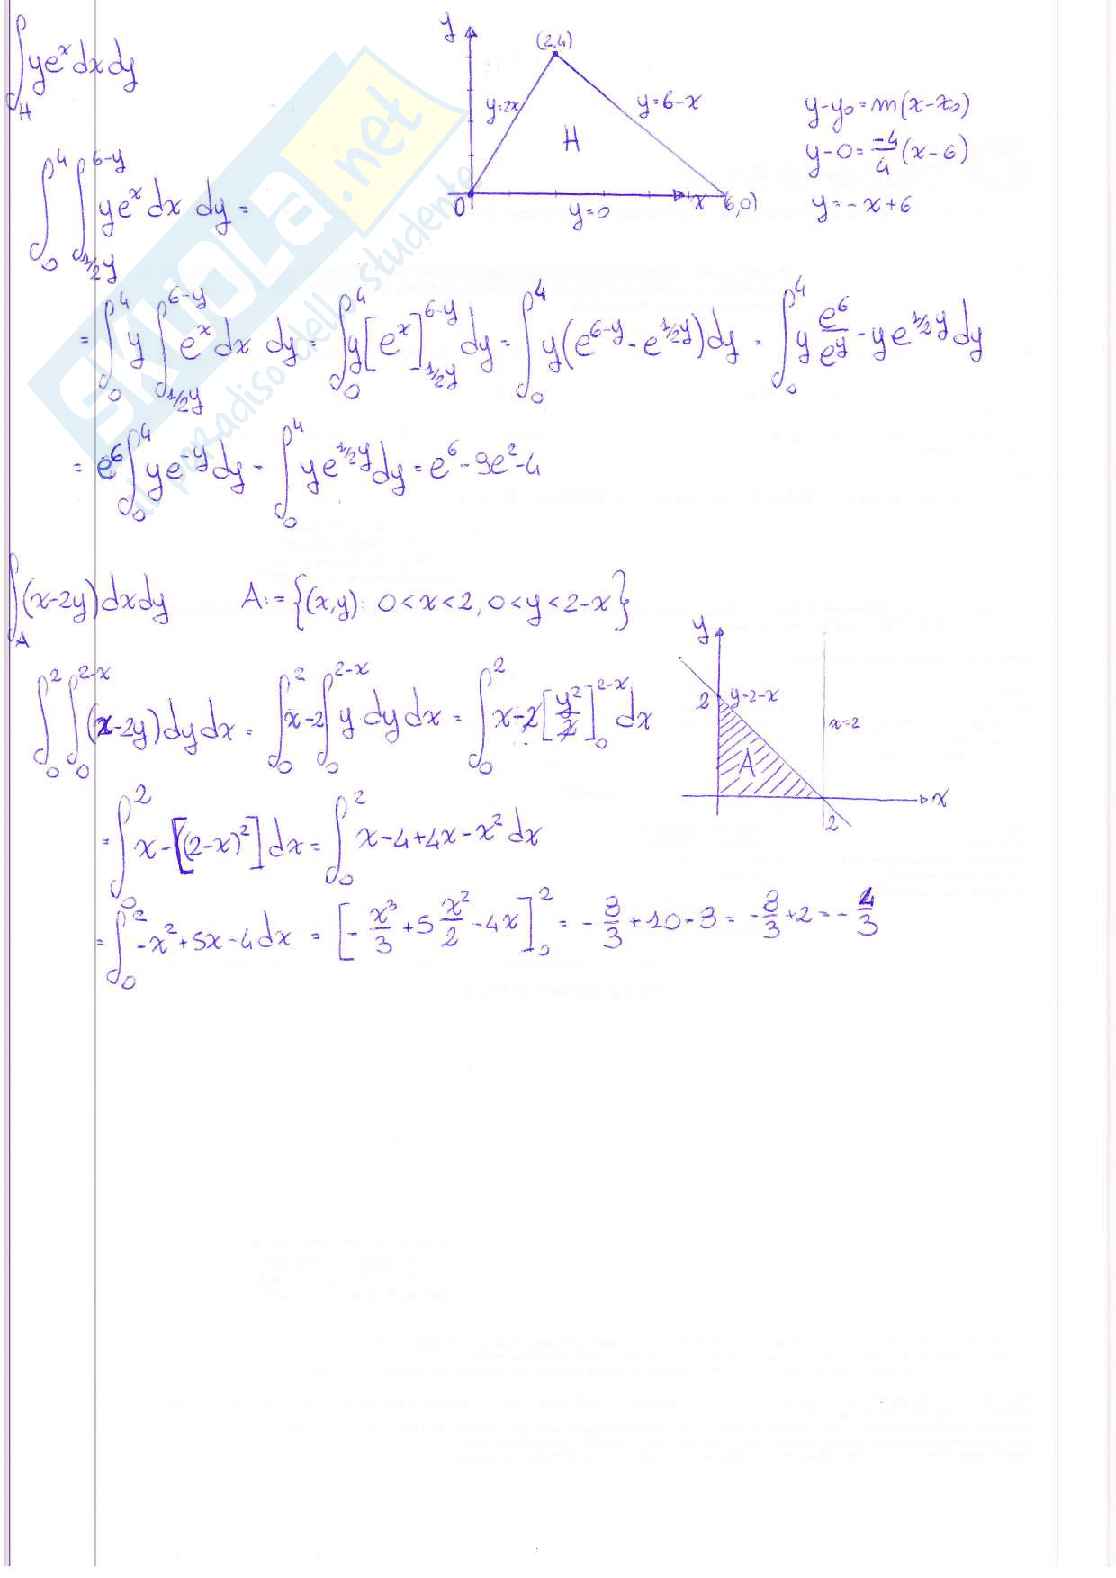 ∫_H ye^x dx dy
y
(2,4)
y=2x
y=6-x
H
0
y=0
x
(6,0)
y-y₀=m(x-x₀)
y-0=-4/4(x-6)
y=-x+6
∫_0^4 ∫_{1/2y}^{6-y} ye^x dx dy =
= ∫_0^4 y ∫_{1/2y}^{6-y} e^x dx dy = ∫_0^4 y[e^x]_{1/2y}^{6-y} dy = ∫_0^4 y(e^{6-y} - e^{1/2y})dy = ∫_0^4 y e^6/e^y - ye^{1/2y} dy
= e^6 ∫_0^4 ye^{-y} dy - ∫_0^4 ye^{1/2y} dy = e^6 - 9e^2 - 4
∫_A (x-2y) dx dy A:={(x,y): 0<x<2, 0<y<2-x}
∫_0^2 ∫_0^{2-x} (x-2y)dy dx = ∫_0^2 x-2 ∫_0^{2-x} y dy dx = ∫_0^2 x-2[y²/2]_0^{2-x} dx
y
2
y=2-x
x=2
A
x
2
= ∫_0^2 x-[(2-x)²] dx = ∫_0^2 x-4+4x-x² dx
= ∫_0^2 -x²+5x-4 dx = [-x³/3 + 5 x²/2 - 4x]_0^2 = -8/3+10-8 = -8/3+2 = -
SKUOLA.net
il paradiso dello studente